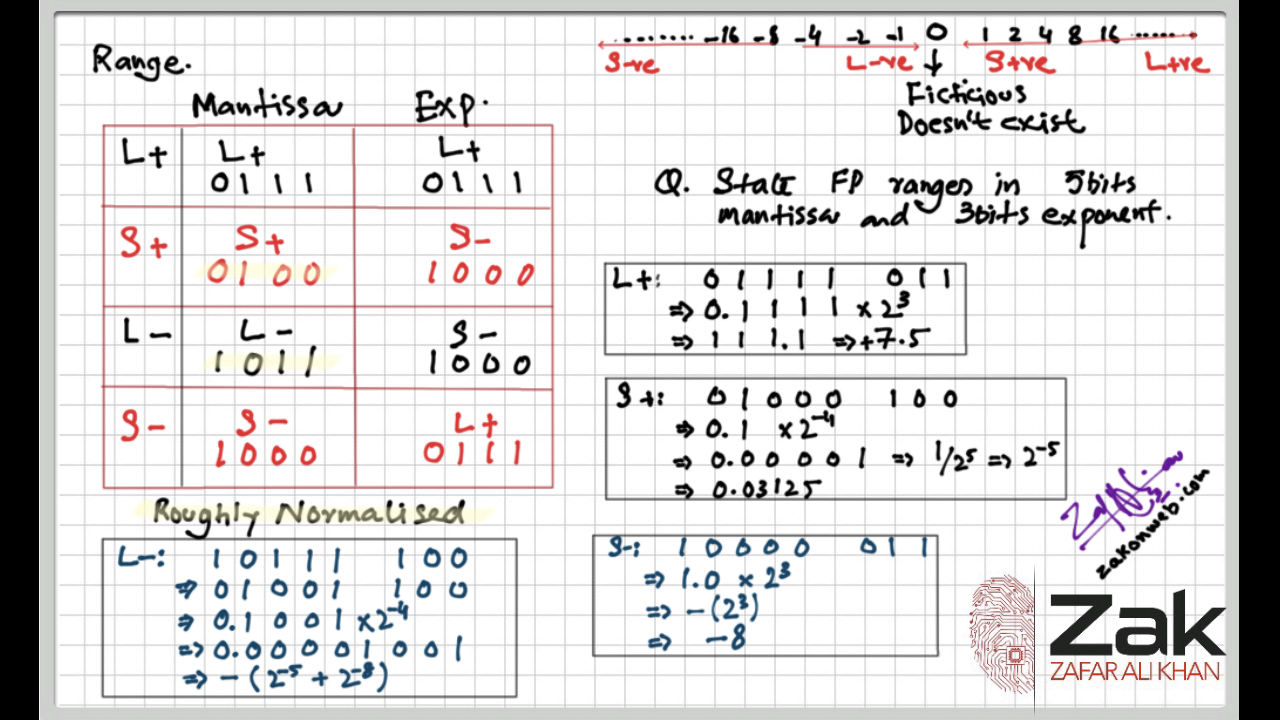 Range.
Mantissa Exp.
L+ L+ L+
0111 0111
S+ S+ S-
0100 1000
L- L- S-
1011 1000
S- S- L+
1000 0111
Roughly Normalised
L-: 10111 100
⇒ 01001 100
⇒ 0.1001 × 2⁻⁴
⇒ 0.00001001
⇒ -(2⁻⁵ + 2⁻⁸)
........ -16 -8 -4 -2 -1 0 1 2 4 8 16 ......
S-ve L-ve S+ve L+ve
Ficticious
Doesn't exist
Q. State FP ranges in 5bits
mantissa and 3bits exponent.
L+: 01111 011
⇒ 0.1111 × 2³
⇒ 111.1 ⇒ +7.5
S+: 01000 100
⇒ 0.1 × 2⁻⁴
⇒ 0.00001 ⇒ 1/2⁵ ⇒ 2⁻⁵
⇒ 0.03125
S-: 10000 011
⇒ 1.0 × 2³
⇒ -(2³)
⇒ -8
zakonweb.com
Zak
ZAFAR ALI KHAN